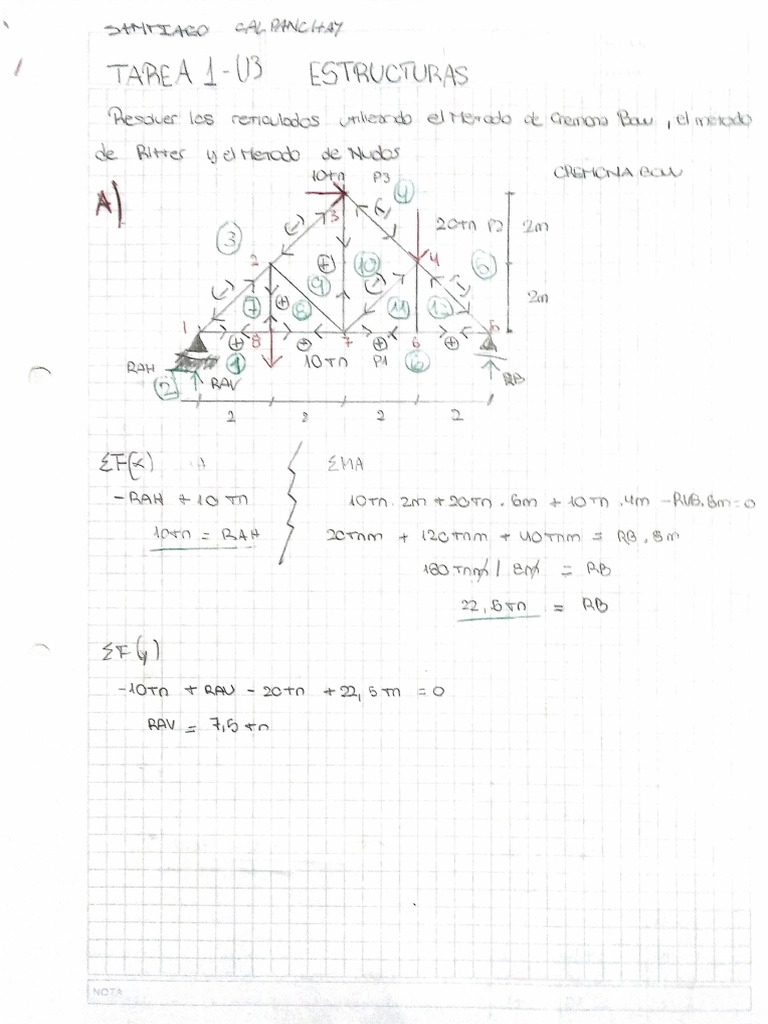 SANTIAGO GALPANCHAY
TAREA 1-U3 ESTRUCTURAS
Resolver los reticulados utilizando el Metodo de Cremona Bow, el método
de Ritter y el Metodo de Nudos
CREMONA BOW
A)
10tn P3
4
3
(-)
(-)
20tn P2
2m
3
2
(+)
10
4
5
(-)
(-)
9
(-)
2m
7
(+)
8
11
12
1
8
7
6
5
(+)
(+)
(+)
(+)
RAH
1
10tn
P1
6
2
RAV
RB
2
2
2
2
ΣF(x)
ΣMA
-RAH + 10 Tn
10Tn. 2m + 20Tn. 6m + 10Tn. 4m - RVB. 8m = 0
10tn = RAH
20Tnm + 120Tnm + 40Tnm = RB. 8m
180 Tnm / 8m = RB
22,5tn = RB
ΣF(y)
-10Tn + RAV - 20Tn + 22,5 Tn = 0
RAV = 7,5 tn
NOTA